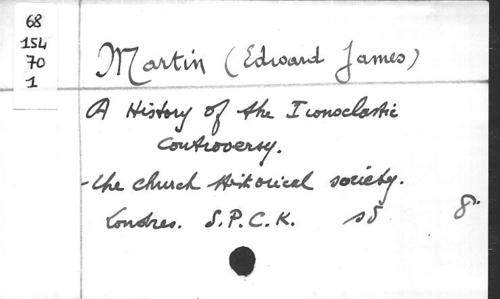 68
154
70
1
Martin (Edward James)
A History of the Iconoclastic
Controversy.
-the church Historical society.
Londres. S.P.C.K. sd 8°